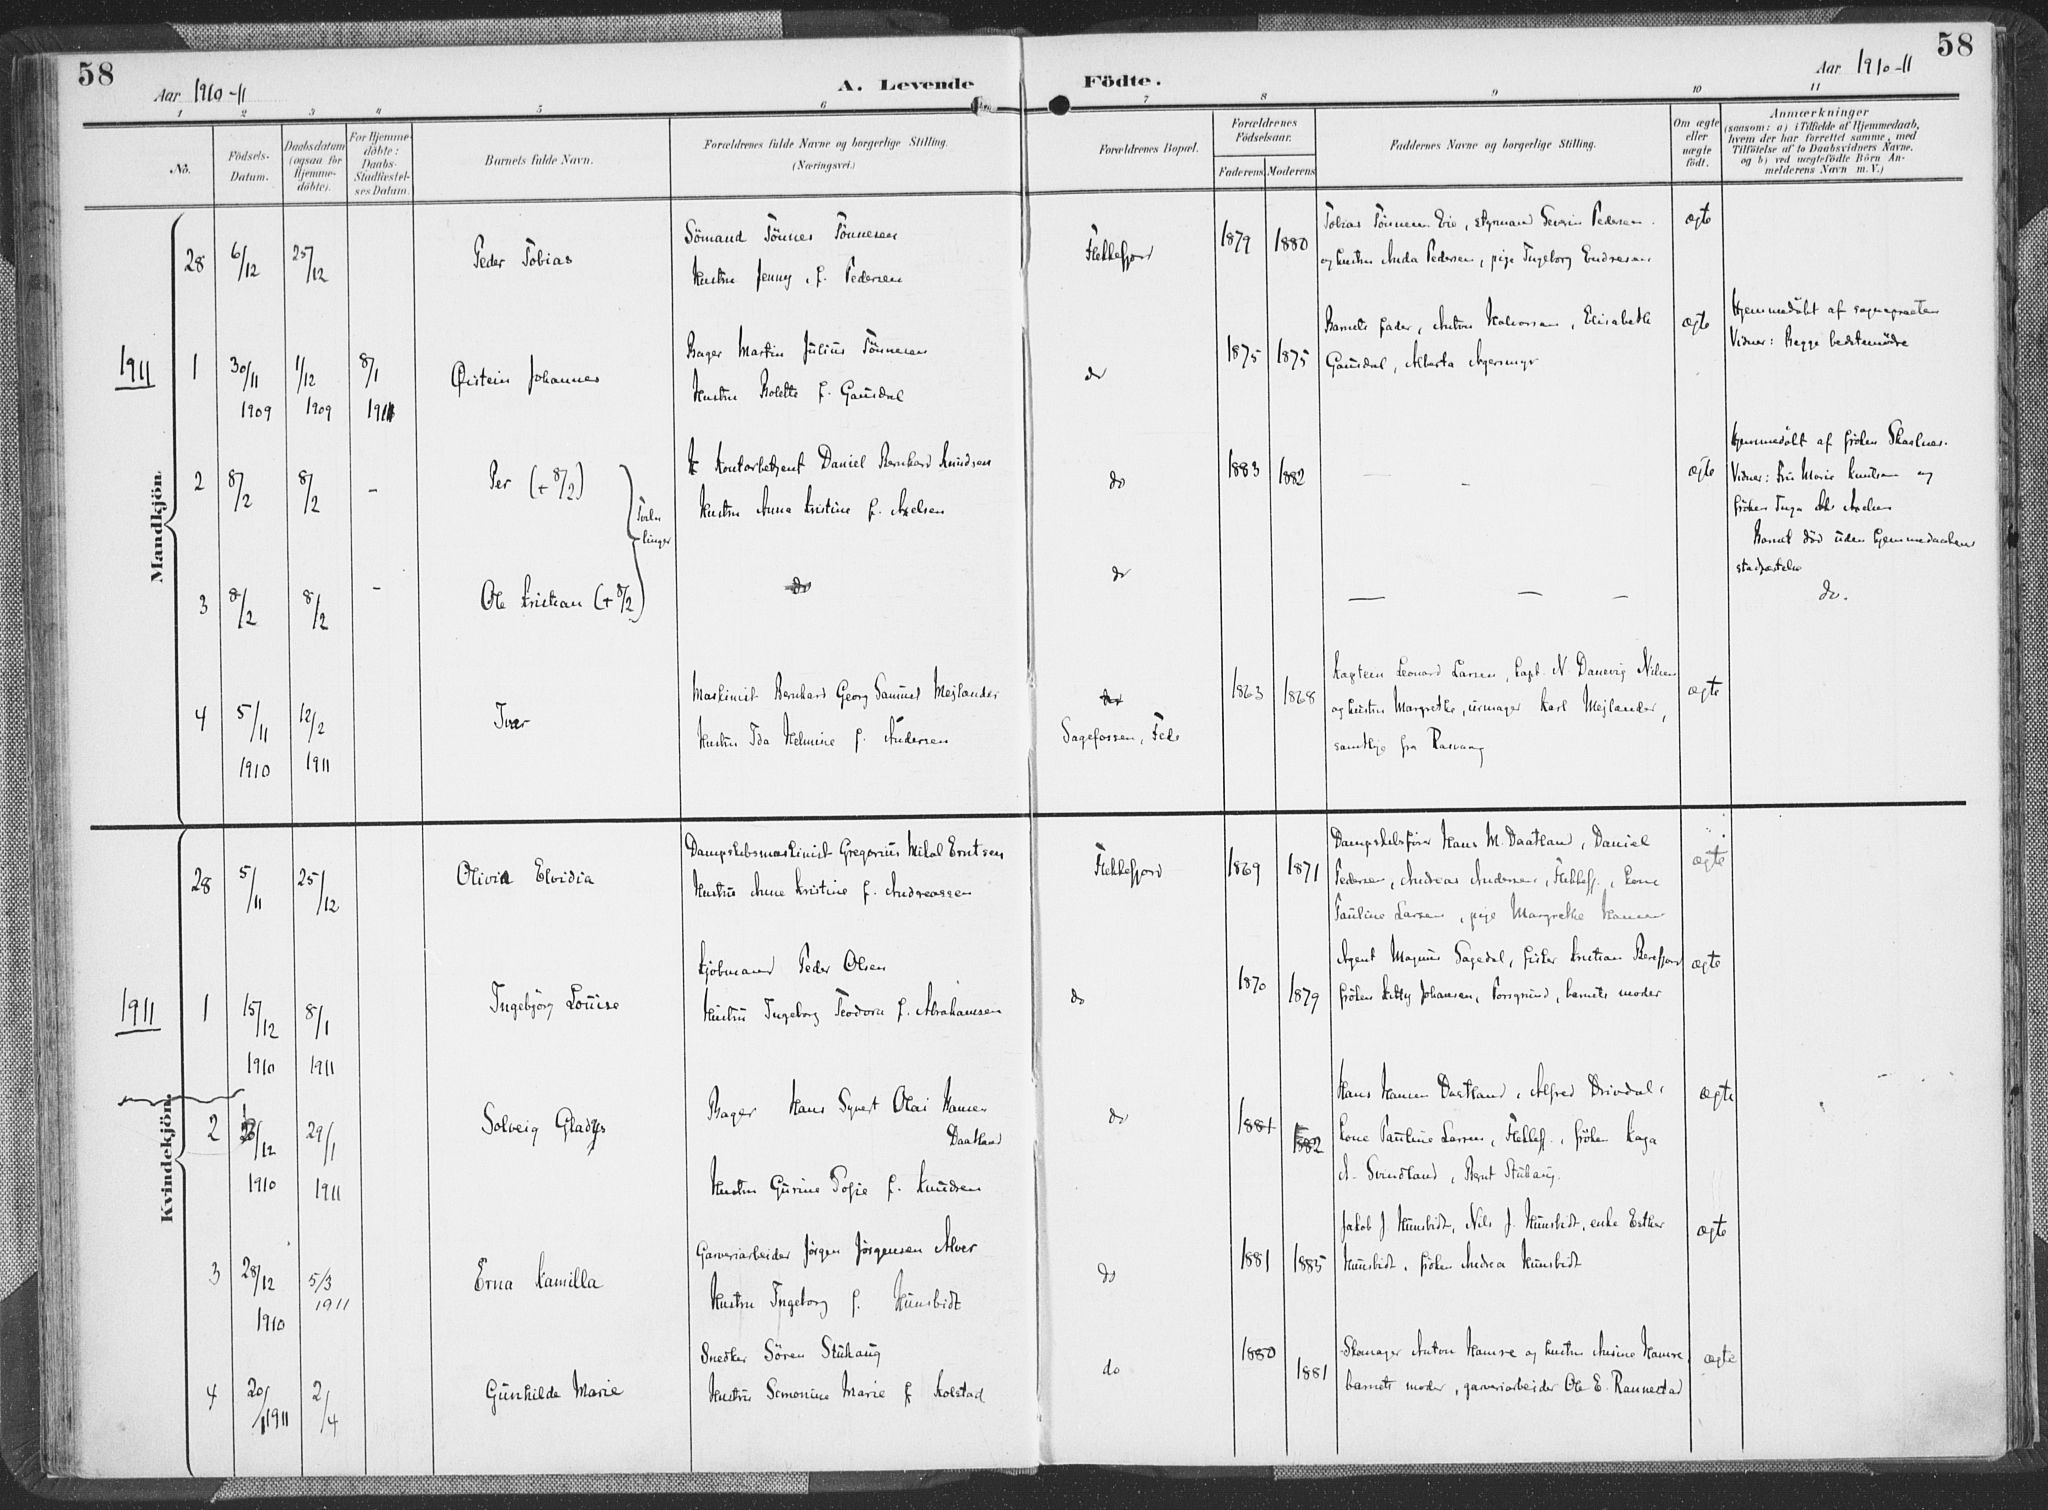 58
58
Aar 1910-11
A. Levende Födte.
Aar 1910-11
1 2 3 4 5 6 7 8 9 10 11
No.
Födsels-Datum.
Daabsdatum (ogsaa for Hjemme-döbte).
For Hjemme-döbte: Daabs-Stadfæstel-ses Datum.
Barnets fulde Navn.
Forældrenes fulde Navne og borgerlige Stilling.
(Næringsvei.)
Forældrenes Bopæl.
Forældrenes Födselsaar.
Faderens
Moderens
Faddernes Navne og borgerlige Stilling.
Om ægte eller uægte født.
Anmærkninger
(saasom: a) i Tilfælde af Hjemmedaab,
hvem der har forrettet samme, med
Tilföielse af to Daabsvidners Navne,
og b) ved uægtefödte Börn An-
melderens Navn m. V.)
Mandkjön.
28 6/12 25/12 Peder Tobias
Sömand Tönnes Tönnesen
Hustru Jenny, f. Pedersen
Flekkefjord 1879 1880
Tobias Tönnesen Eie, styrmand Severin Pedersen
og hustru Anda Pedersen, pige Ingeborg Endresen
ægte
1911
1 30/11 1909 1/12 1909 8/1 1911 Øistein Johannes
Bager Martin Julius Tönnesen
Hustru Bolette f. Gausdal
do 1875 1875
Barnets fader, Anton Halvorsen, Elisabeth
Gausdal, Alberta
ægte
Hjemmedöbt af sognepræsten
Vidner: Begge bedstemödre
2 8/2 8/2 - Per (+ 8/2)
Kontorbetjent Daniel Bernhard Knudsen
Hustru Anna Kristine f. Axelsen
do 1883 1882 - - ægte
Hjemmedöbt af fröken Skaalnes.
Vidner: Fru Marie Knutsen og
fröken Inga Axelsen
Barnet död uden hjemmedaabens
stadfæstelse
Tvillinger
3 8/2 8/2 - Ole Kristian (+ 8/2)
do
do — — — do.
4 5/11 1910 12/2 1911 Ivar
Maskinist Bernhard Georg Samuel Mejlander
Hustru Ida Helmine f. Andersen
do
Sagefossen, Feda 1863 1868
Kaptein Leonard Larsen, Capt. N. Danevig Nilsen
og hustru Margrethe, urmager Karl Mejlander,
samtlige fra Rasvaag
ægte
Kvindekjön.
28 5/11 25/12 Olivia Elvidia
Dampskibsmaskinist Gregorius Mikal Erntsen
Hustru Anne Kristine f. Andreassen
Flekkefjord 1869 1871
Dampskibsförer Hans M. Daatland, Daniel
Pedersen, Andreas Andersen, Flekkefj., kone
Pauline Larsen, pige Margrethe Hansen
ægte
1911
1 15/12 1910 8/1 1911 Ingebjörg Louise
Kjöbmand Peder Olsen
Hustru Ingeborg Teodora f. Abrahamsen
do 1870 1879
Agent Magnus Sagedal, fisker Kristian Berefjord
fröken Kitty Johansen, Porsgrund, barnets moder
ægte
2 /12 1910 29/1 1911 Solveig Gladys
Bager Hans Syvert Olai Hansen
Daatland
Hustru Gurine Sofie f. Knudsen
do 1881 1882
Hans Hansen Daatland, Alfred Drivdal,
kone Pauline Larsen, Flekkefj., fröken Kaga
A. Svindland, Bernt Stuhaug.
ægte
3 28/12 1910 5/3 1911 Erna Kamilla
Garveriarbeider Jörgen Jörgensen Alver
Hustru Ingeborg f. Hunsbidt
do 1881 1885
Jakob J. Hunsbidt, Nils J. Hunsbidt, enke Esther
Hunsbidt, fröken Andrea Hunsbidt
ægte
4 20/1 1911 2/4 Gunhilde Marie
Snedker Sören Stuhaug
Hustru Semonine Marie f. Kolstad
do 1880 1881
Skomager Anton Hamre og hustru Ansine Hamre,
barnets moder, garveriarbeider Ole E. Rannestad
ægte